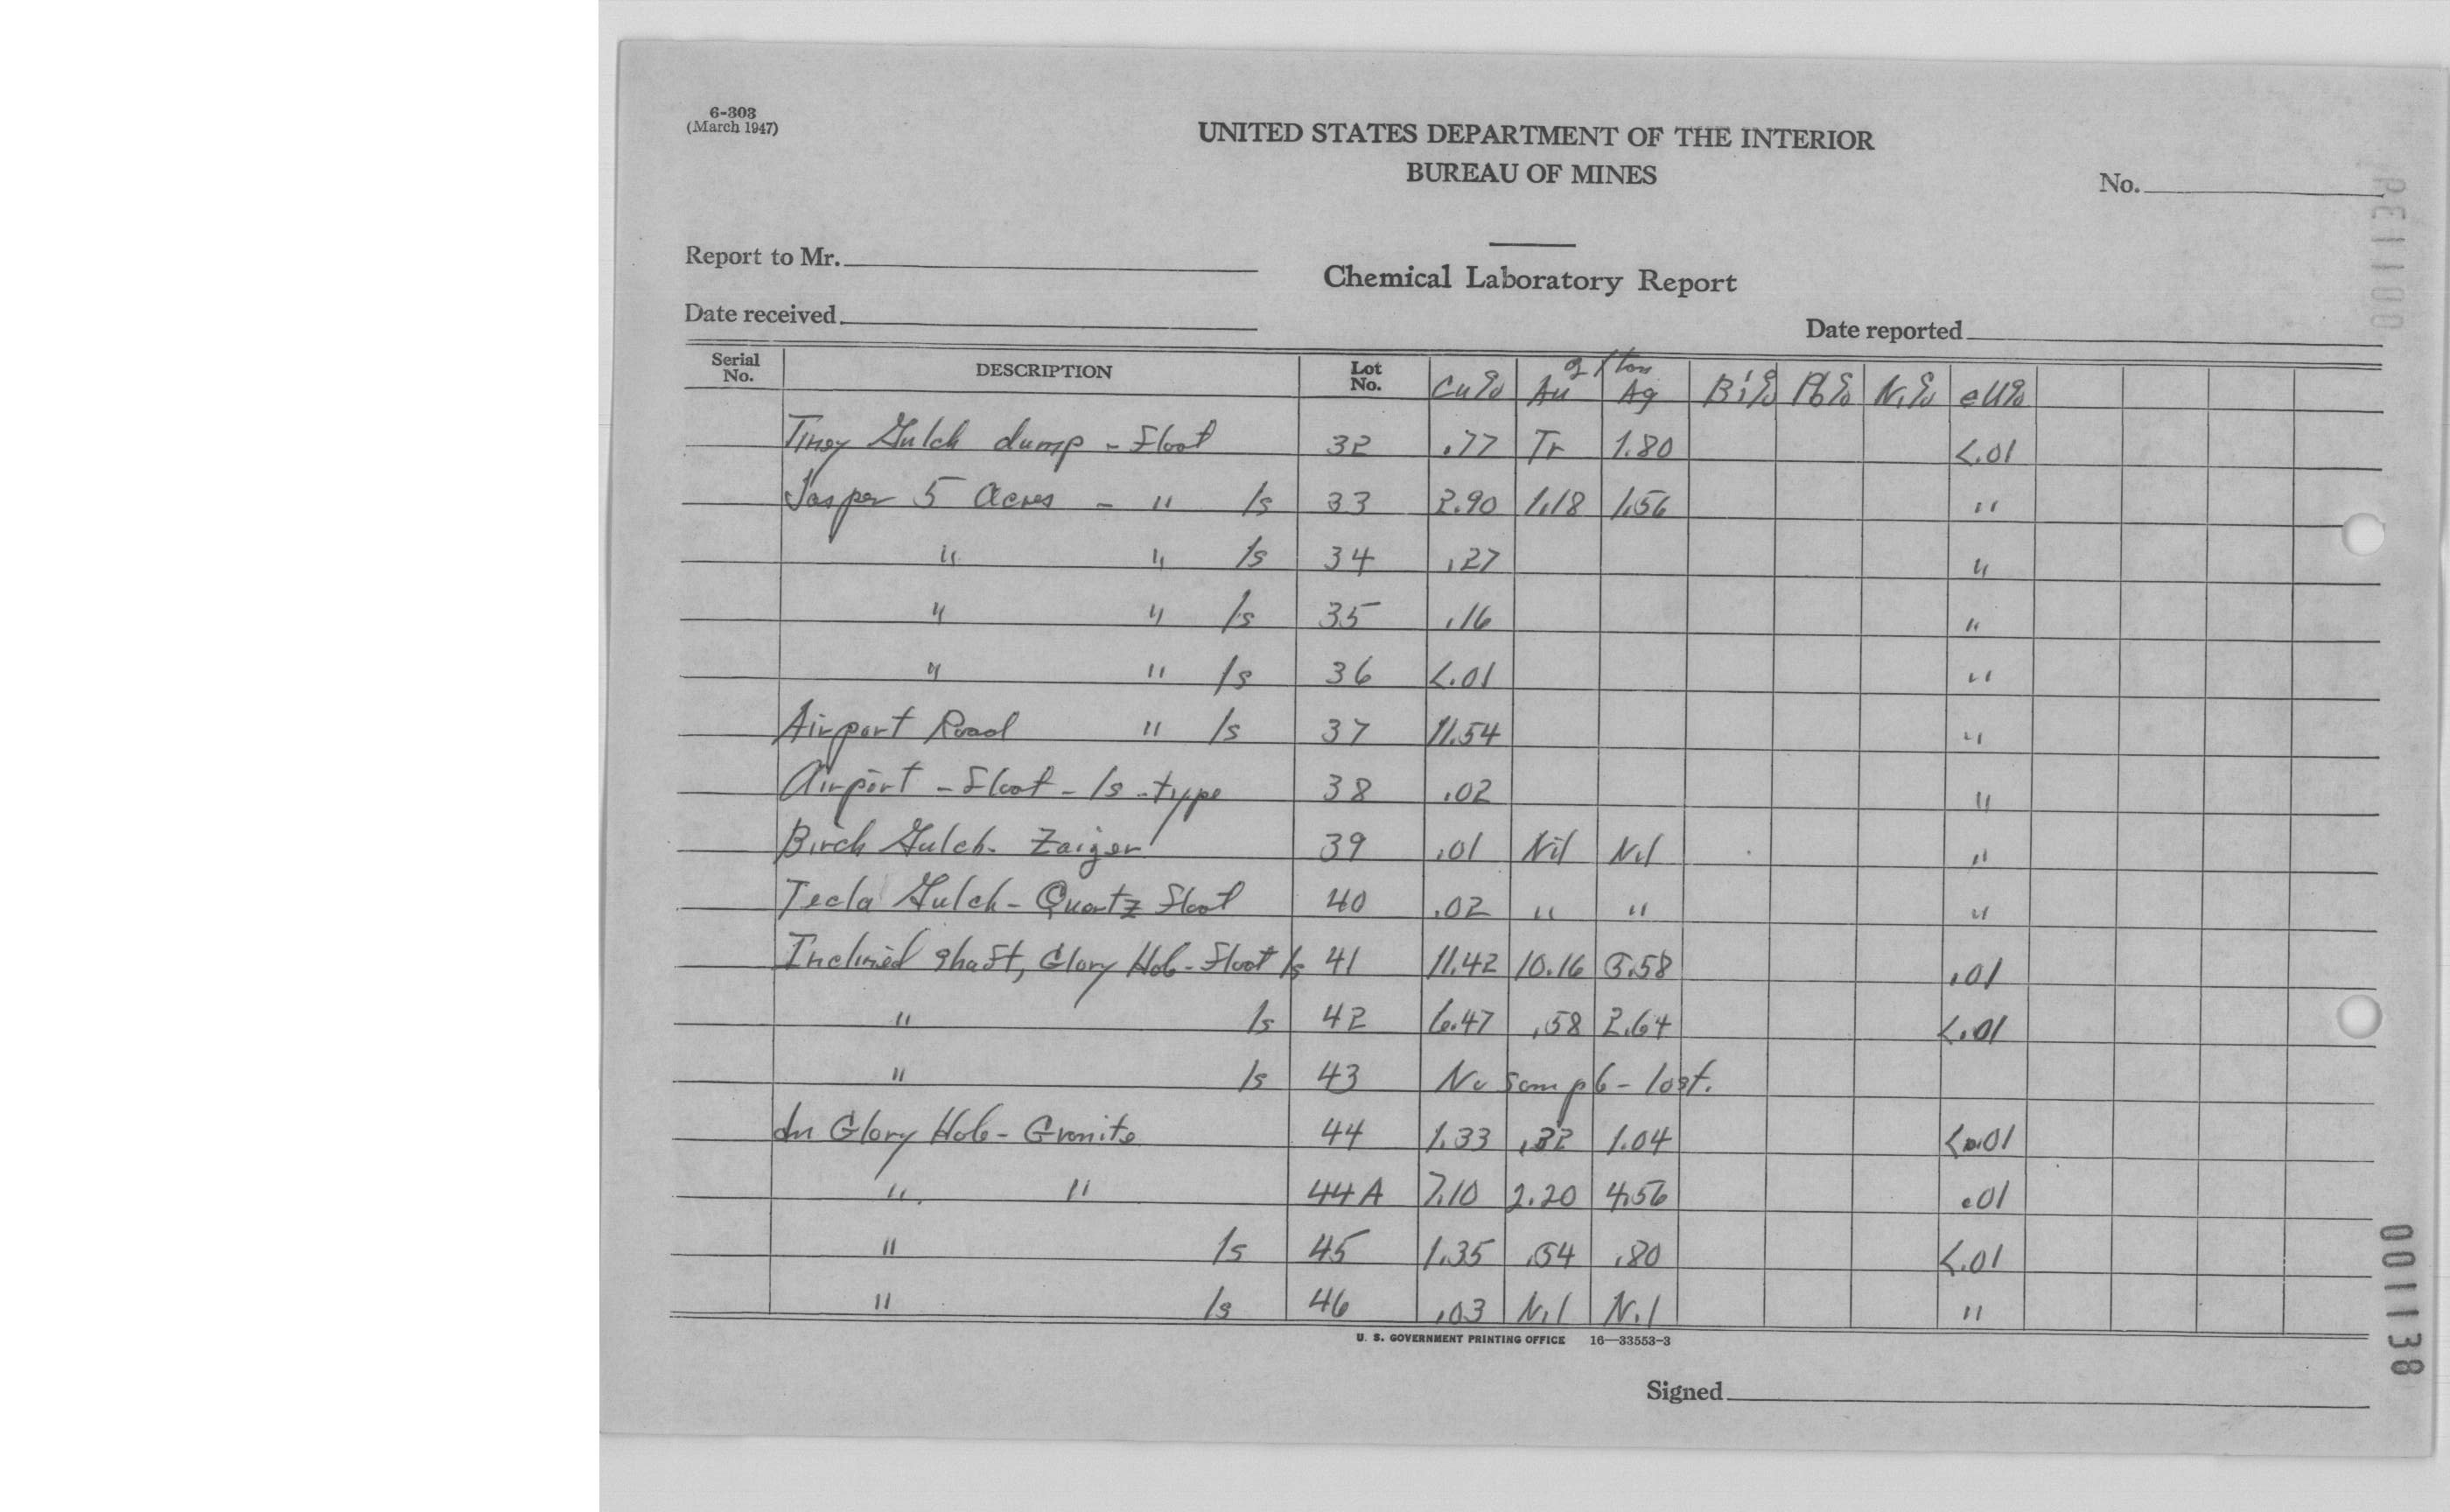 6-303
(March 1947)
UNITED STATES DEPARTMENT OF THE INTERIOR
BUREAU OF MINES
No.
Report to Mr.
Chemical Laboratory Report
Date received
Date reported
Serial No. DESCRIPTION Lot No. Cu% Au Ag Bi% Pb% Ni% eU%
/ton
Tiney Gulch dump - Float 32 .77 Tr 1.80 <.01
Jasper 5 Acres - " ls 33 2.90 1.18 1.56 "
" " ls 34 .27 "
" " ls 35 .16 "
" " ls 36 <.01 "
Airport Road " ls 37 11.54 "
Airport - Float - ls - type 38 .02 "
Birch Gulch - Zaiger 39 .01 Nil Nil "
Tecla Gulch - Quartz Float 40 .02 " " "
Inclined shaft, Glory Hole - Float ls 41 11.42 10.16 .58 .01
" ls 42 6.47 .58 2.64 <.01
" ls 43 No sample - lost.
In Glory Hole - Granite 44 1.33 .32 1.04 <.01
" " 44A 7.10 2.20 4.56 .01
" ls 45 1.35 .54 .80 <.01
" ls 46 .03 Nil Nil "
U. S. GOVERNMENT PRINTING OFFICE 16—33553-3
Signed
001138